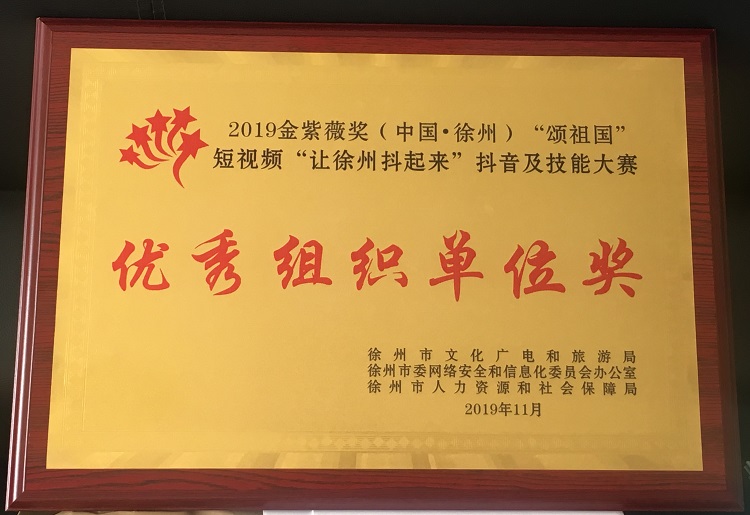 2019金紫薇奖（中国·徐州）“颂祖国”
短视频“让徐州抖起来”抖音及技能大赛
优秀组织单位奖
徐州市文化广电和旅游局
徐州市委网络安全和信息化委员会办公室
徐州市人力资源和社会保障局
2019年11月